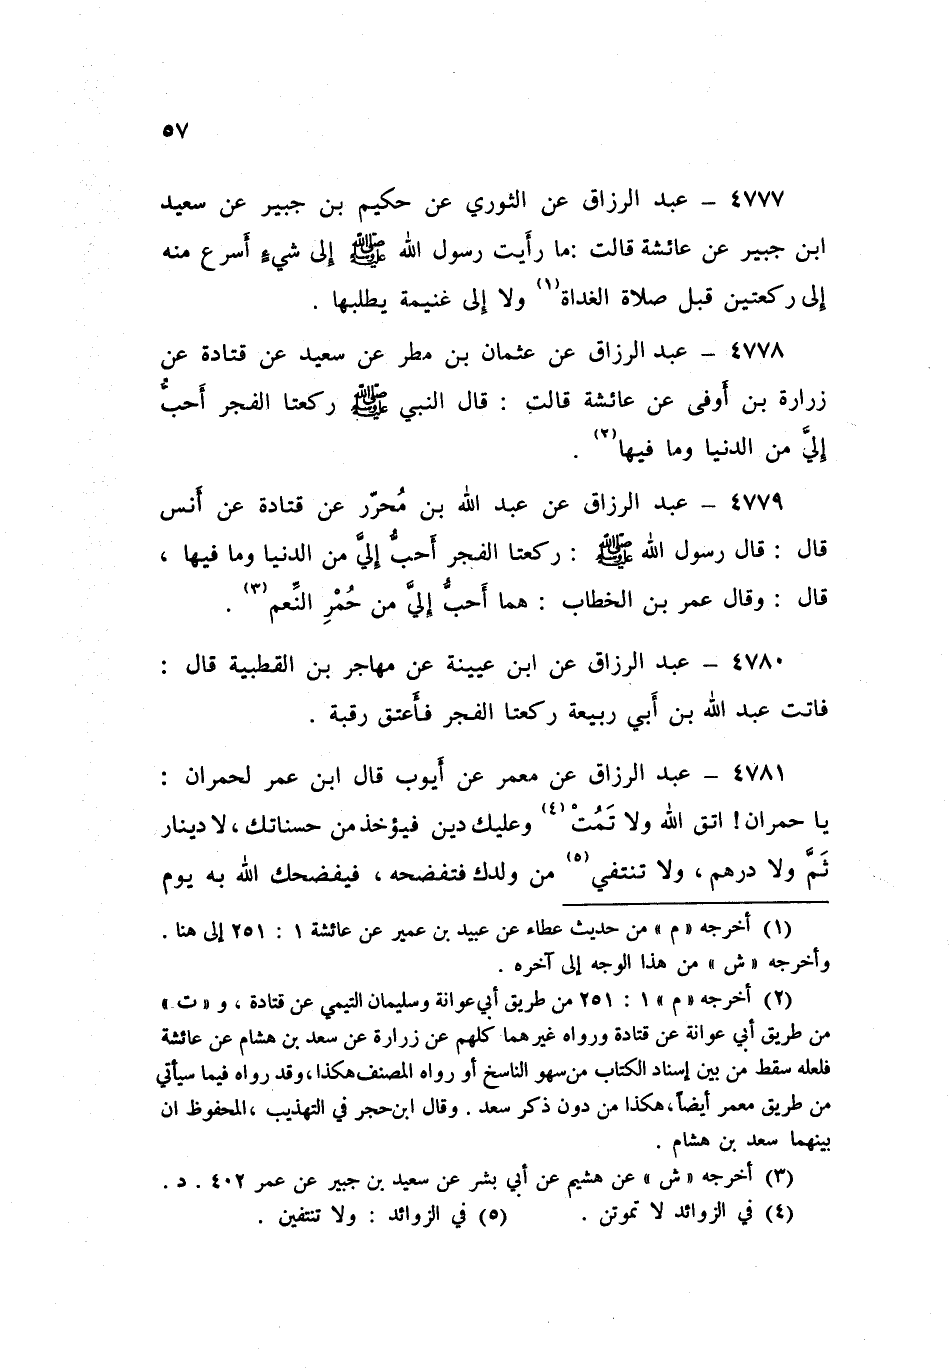 ٥٧
٤٧٧٧ - عبد الرزاق عن الثوري عن حكيم بن جبير عن سعيد
ابن جبير عن عائشة قالت : ما رأيت رسول الله ﷺ إلى شيءٍ أسرع منه
إلى ركعتين قبل صلاة الغداة(١) ولا إلى غنيمة يطلبها .
٤٧٧٨ - عبد الرزاق عن عثمان بن مطر عن سعيد عن قتادة عن
زرارة بن أوفى عن عائشة قالت : قال النبي ﷺ ركعتا الفجر أحبُّ
إليَّ من الدنيا وما فيها(٢) .
٤٧٧٩ - عبد الرزاق عن عبد الله بن مُحرّر عن قتادة عن أنس
قال : قال رسول الله ﷺ : ركعتا الفجر أحبُّ إليَّ من الدنيا وما فيها ،
قال : وقال عمر بن الخطاب : هما أحبُّ إليَّ من حُمْرِ النَّعم(٣) .
٤٧٨٠ - عبد الرزاق عن ابن عيينة عن مهاجر بن القطبية قال :
فاتت عبد الله بن أبي ربيعة ركعتا الفجر فأعتق رقبة .
٤٧٨١ - عبد الرزاق عن معمر عن أيوب قال ابن عمر لحمران :
يا حمران! اتق الله ولا تَمُتْ(٤) وعليك دين فيؤخذ من حسناتك ، لا دينار
ثَمَّ ولا درهم ، ولا تنتفي(٥) من ولدك فتفضحه ، فيفضحك الله به يوم
(١) أخرجه «م» من حديث عطاء عن عبيد بن عمير عن عائشة ١ : ٢٥١ إلى هنا .
وأخرجه «ش» من هذا الوجه إلى آخره .
(٢) أخرجه «م» ١ : ٢٥١ من طريق أبي عوانة وسليمان التيمي عن قتادة ، و «ت»
من طريق أبي عوانة عن قتادة ورواه غيرهما كلهم عن زرارة عن سعد بن هشام عن عائشة
فلعله سقط من بين إسناد الكتاب من سهو الناسخ أو رواه المصنف هكذا ، وقد رواه فيما سيأتي
من طريق معمر أيضاً ، هكذا من دون ذكر سعد . وقال ابن حجر في التهذيب ، المحفوظ ان
بينهما سعد بن هشام .
(٣) أخرجه «ش» عن هشيم عن أبي بشر عن سعيد بن جبير عن عمر ٤٠٢ . د .
(٤) في الزوائد لا تموتن . (٥) في الزوائد : ولا تنتفين .